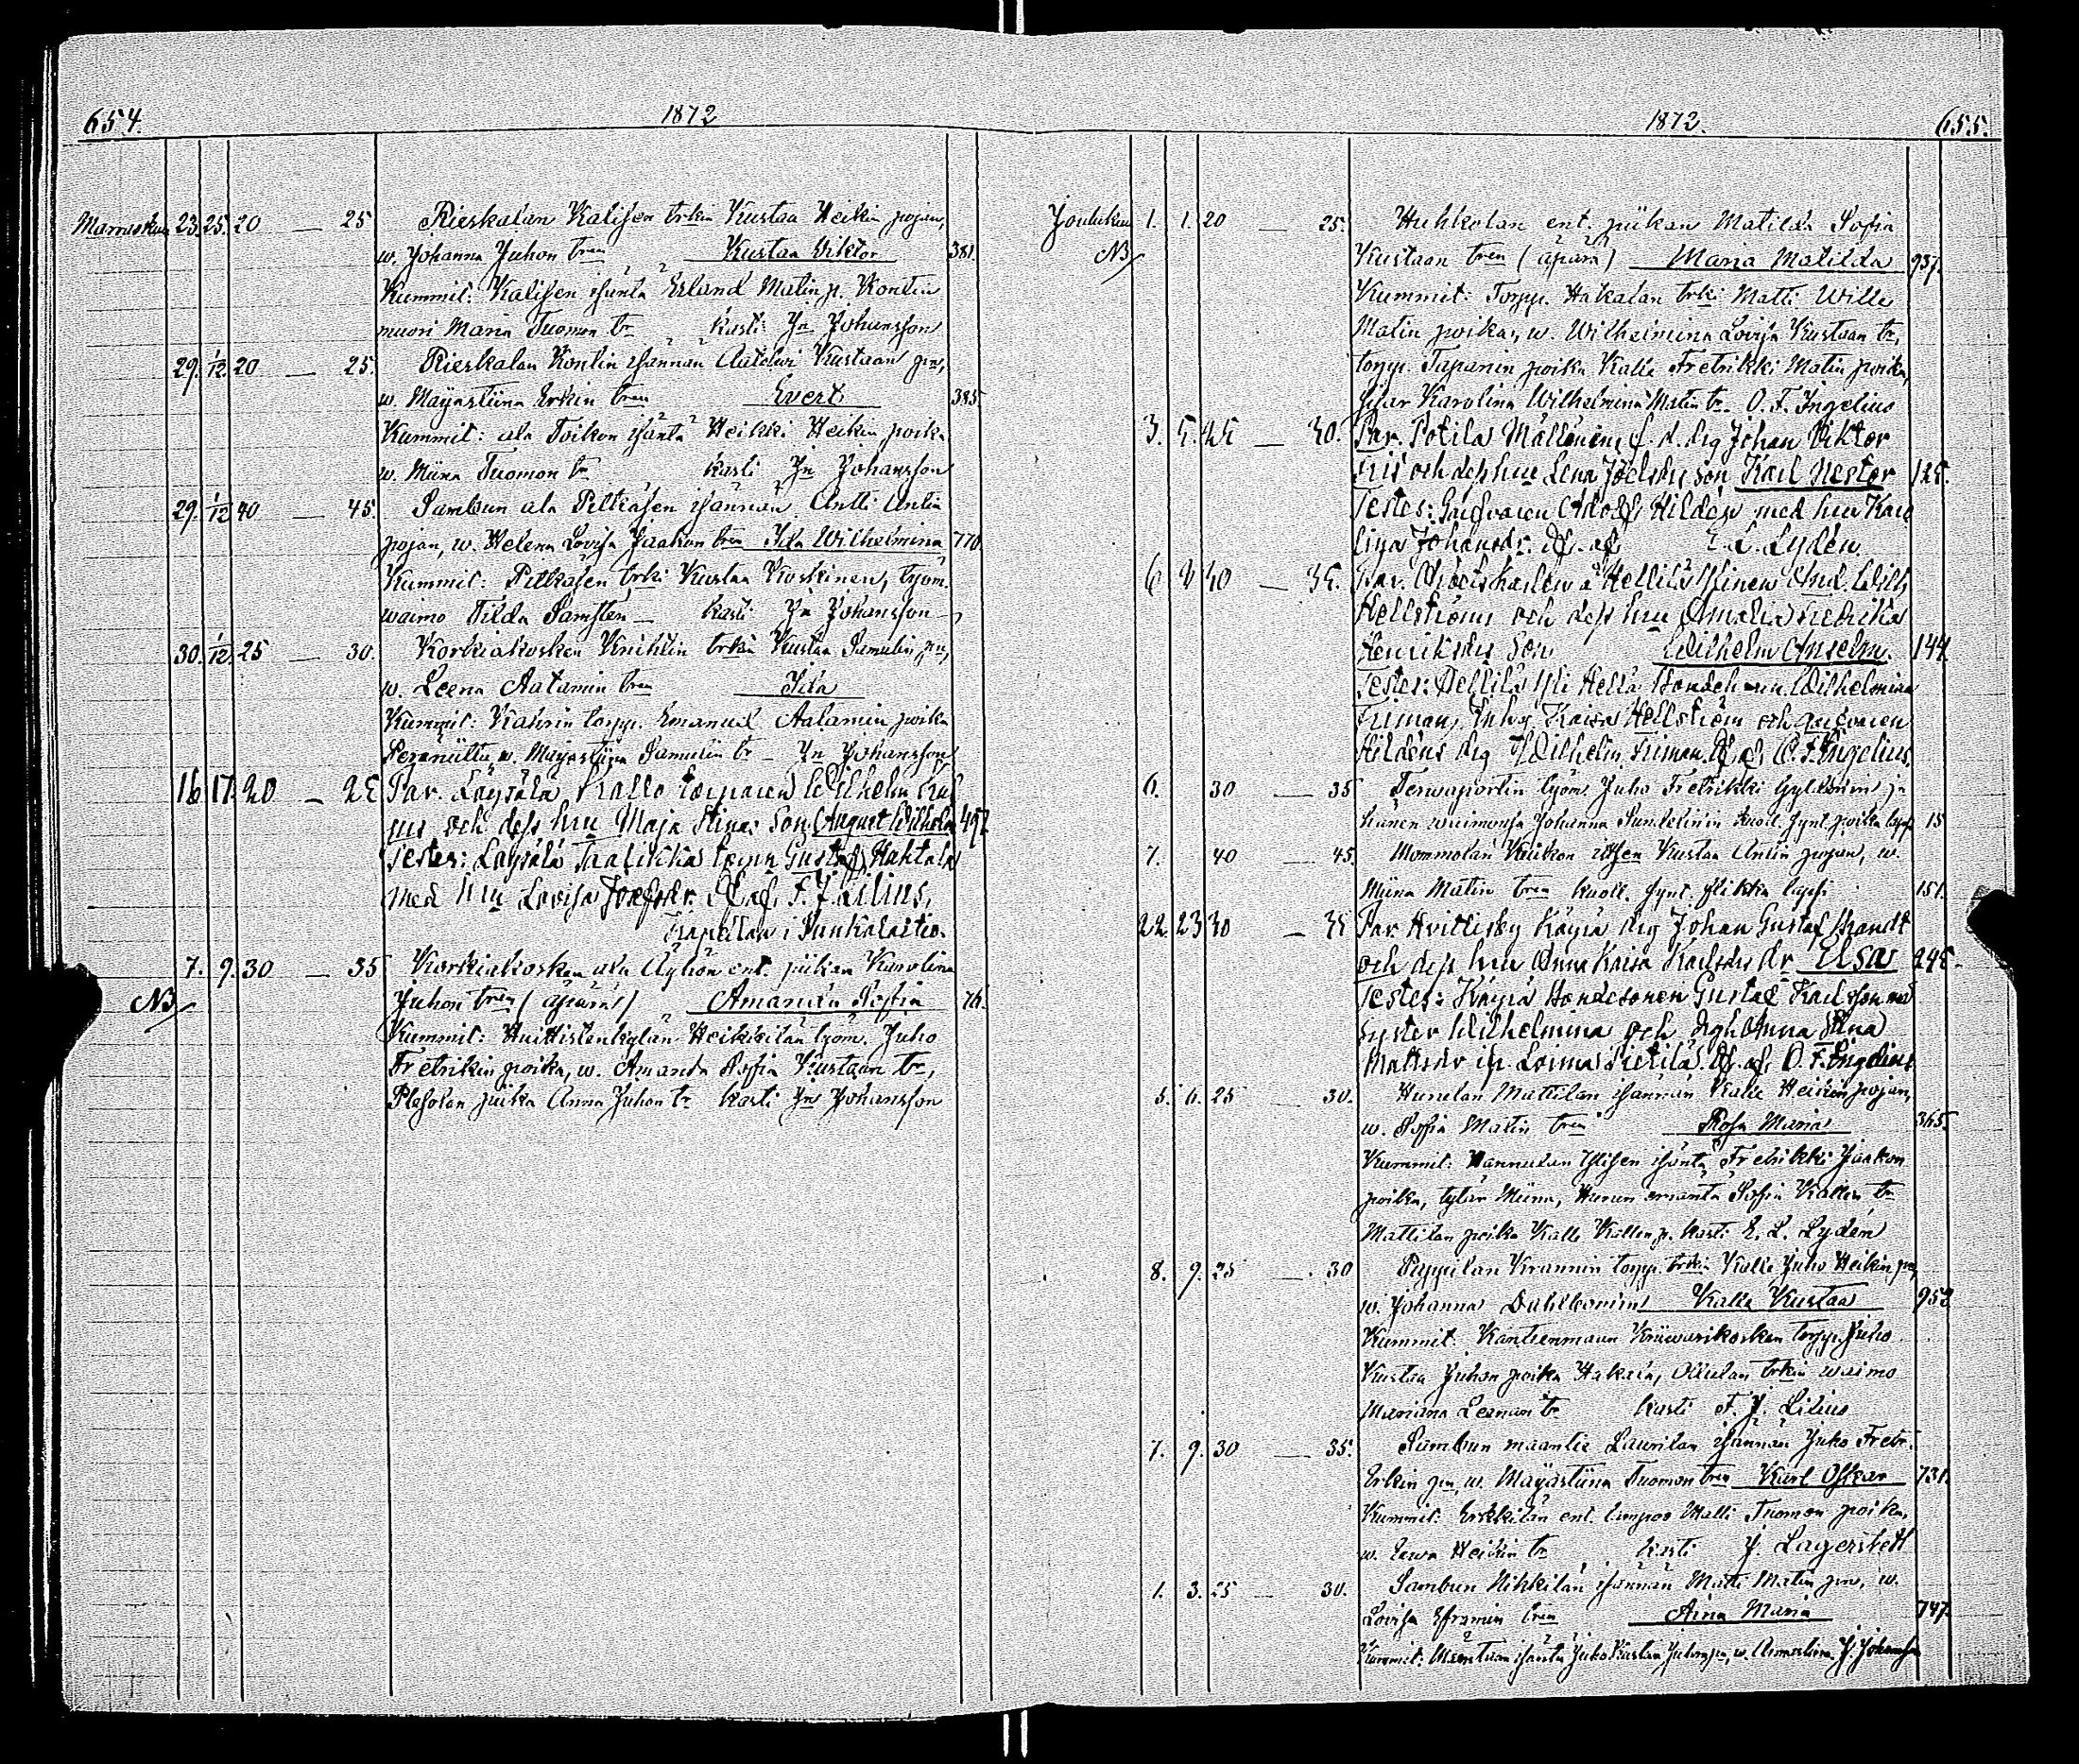 654.
1872
Marraskuu 23. 25. 20 — 25 Rieskalan Kalisen trkin Kustaa Heikin pojan,
w. Johanna Juhon tren Kustaa Viktor 381.
Kummit: Kalisen isäntä Erland Matin p. Kontin
muori Maria Tuomon tr kasti Jn Johansson
29. 1/12. 20 — 25. Rieskalan Kontin isännän Aatolwi Kustaan pn,
w. Mayastiina Erkin tren Evert 385.
Kummit: ala Toikon isäntä Heikki Heikin poika
w. Miina Tuomon tr kasti Jn Johansson
29. 1/12 40 — 45. Sambun ala Pitkäsen isännän Antti Antin
pojan, w. Helena Lovisa Jaakon tren Ida Wilhelmina 770.
Kummit: Pitkäsen trki Kustaa Koskinen, työm.
waimo Tilda Samsten — kasti Jn Johansson
30. 1/12. 25 — 30. Korkiakosken Knihtin trkin Kustaa Samulin pn,
w. Leena Aatamin tren Ida
Kummit: Kahrin torpp. Emanuel Aatamin poika
w. Mayastiina Samulin tr — Jn Johansson
16 17. 20 — 25 Par. Löysälä Kallo torparen Wilhelm
och dess hru Maja Stinas Son August Wilhelm 492
Testes: Löysälä torpn Gustaf Hahtala
med hru Lovisa Josefsdr. Df. af. F. J. Lilius,
Kapellan i Punkalaitio.
7. 9. 30 — 35 Korkiakosken ala Äyhön ent. piikan Karolina
NB Juhon tren (äpärä) Amanda Sofia 76.
Kummit: Huittistenkylän Heikkilän työm. Juho
Fretrikin poika, w. Amanda Sofia Kustaan tr,
piika Anna Juhon tr kasti Jn Johansson
1872.
655.
Joulukuu 1. 1. 20 — 25. Huhkolan ent. piikan Matilda Sofia
NB Kustaan tren (äpärä) Maria Matilda 937.
Kummit: Torpp. Hakalan trki Matti Wille
Matin poika, w. Wilhelmina Lovisa Kustaan tr,
torpp. Tapanin poika Kalle Fretrikki Matin poika,
sisar Karolina Wilhelmina Matin tr. O. F. Ingelius
3. 5. 25 — 30. Par. Potila Mällöinin f. d. drg Johan Viktor
och dess hru Lena Joelsdrs son Karl Nestor 125.
Testes: Gardvaren Adolf Hildén med hru Karo
lina Johansdr. Df. af E. L. Lydén
6 8 30 — 35. Par. Arbetskarlen å Hellilä Ylinen And. Wilh.
Hellströms och dess hru Amalia Fredrika
Henriksdrs Son Wilhelm Anselm. 144
Testes: Hellilä Yli Hella Bondeh Wilhelmina
Friman, Inhs. Kaisa Hellström och gardvaren
Hildéns drg Wilhelm Friman. Df. af O. F. Ingelius.
6. 30 — 35 Terwaportin työm. Juho Fretrikki ja
hänen waimonsa Johanna Sundelinin kuoll. synt. poika lapsi 15
7. 40 — 45. Mommolan Knikon itsen Kustaa Antin pojan, w.
Miina Matin tren kuoll. synt. flikka lapsi 151.
22. 23 30 — 35 Par Hvittisby Käyrä drg Johan Gustaf Brandt
och dess hru Anna Kaisa Karlsdrs dr Elsa 248.
Testes: Käyrä Bondesonen Gustaf Karlsson md
syster Wilhelmina och drgh Anna Stina
Mattsdr ifr. Loima Pietilä. Df. af. O. F. Ingelius
5. 6. 25 — 30. Hurulan Mattilan isännän Kalle Heikin pojan,
w. Sofia Matin tren Rosa Maria 365.
Kummit: Hannulan Ylisen isäntä Fretrikki Jaakon
poika, tytär Miina, Hurun emäntä Sofia Kallen tr
Mattilan poika Kalle Kallen p. kasti E. L. Lydén
8. 9. 25 — 30 Pyypilän Krannin torpp. trkin Kalle Juho Heikin pn,
w. Johanna Dahlbomin Kalle Kustaa 952
Kummit: Kanteenmaan Kniiwarikosken torpp. Juho
Kustaa Juhon poika Hakala, trkin waimo
Mariana Leenan tr kasti F. J. Lilius
7. 9. 30 — 35. Sambun maantie Laurilan isännän Juho Fretr.
Erkin pn, w. Mayastiina Tuomon tren Karl Oskar 731.
Kummit: Erkkilän ent. lampos Matti Tuomon poika,
w. Eewa Heikin tr kasti J. Lagerstedt
1. 3. 25 — 30. Sambun Nihkilän isännän Matti Matin pn, w.
Lovisa Eframin tren Aina Maria 747.
Kummit: isäntä Juho Kustaa Juhon pn, w. Annastiina. J. Johansson